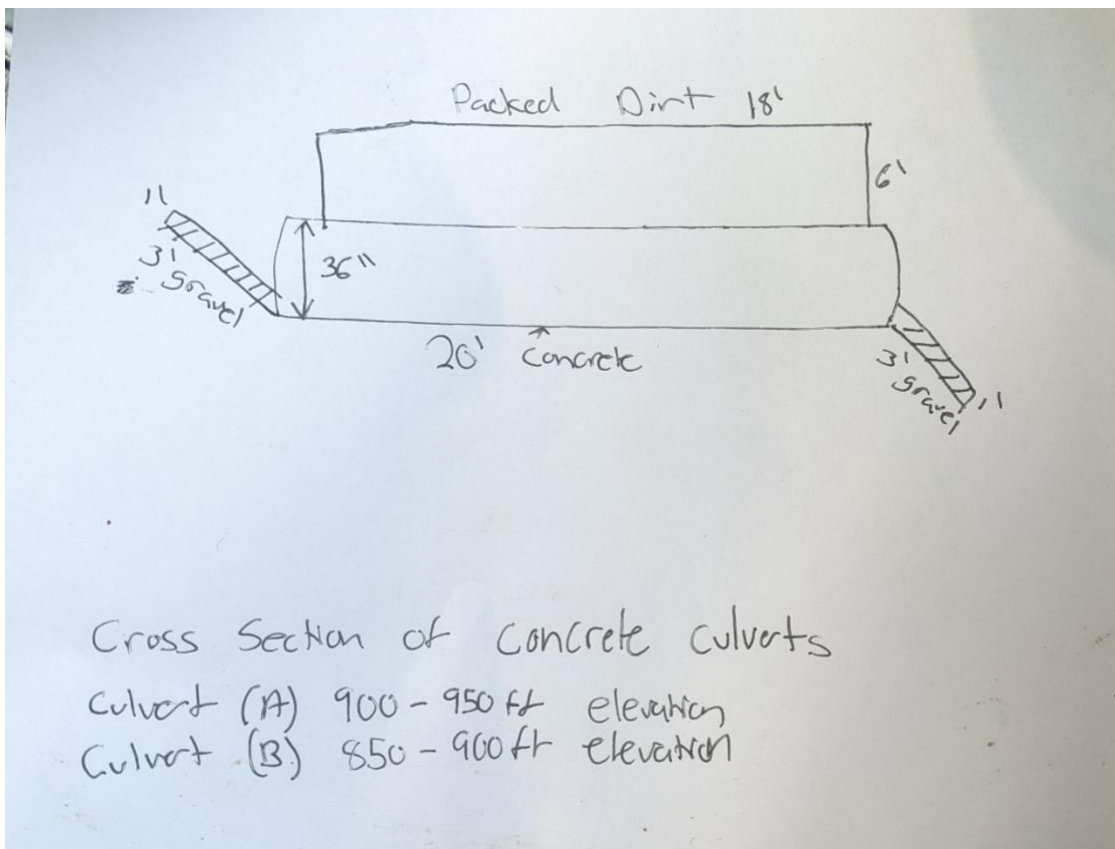 Packed Dirt 18'
6'
1'
36"
3'
gravel
20' Concrete
3'
gravel
1'
Cross Section of Concrete Culverts
Culvert (A) 900 - 950 ft elevation
Culvert (B) 850 - 900 ft elevation